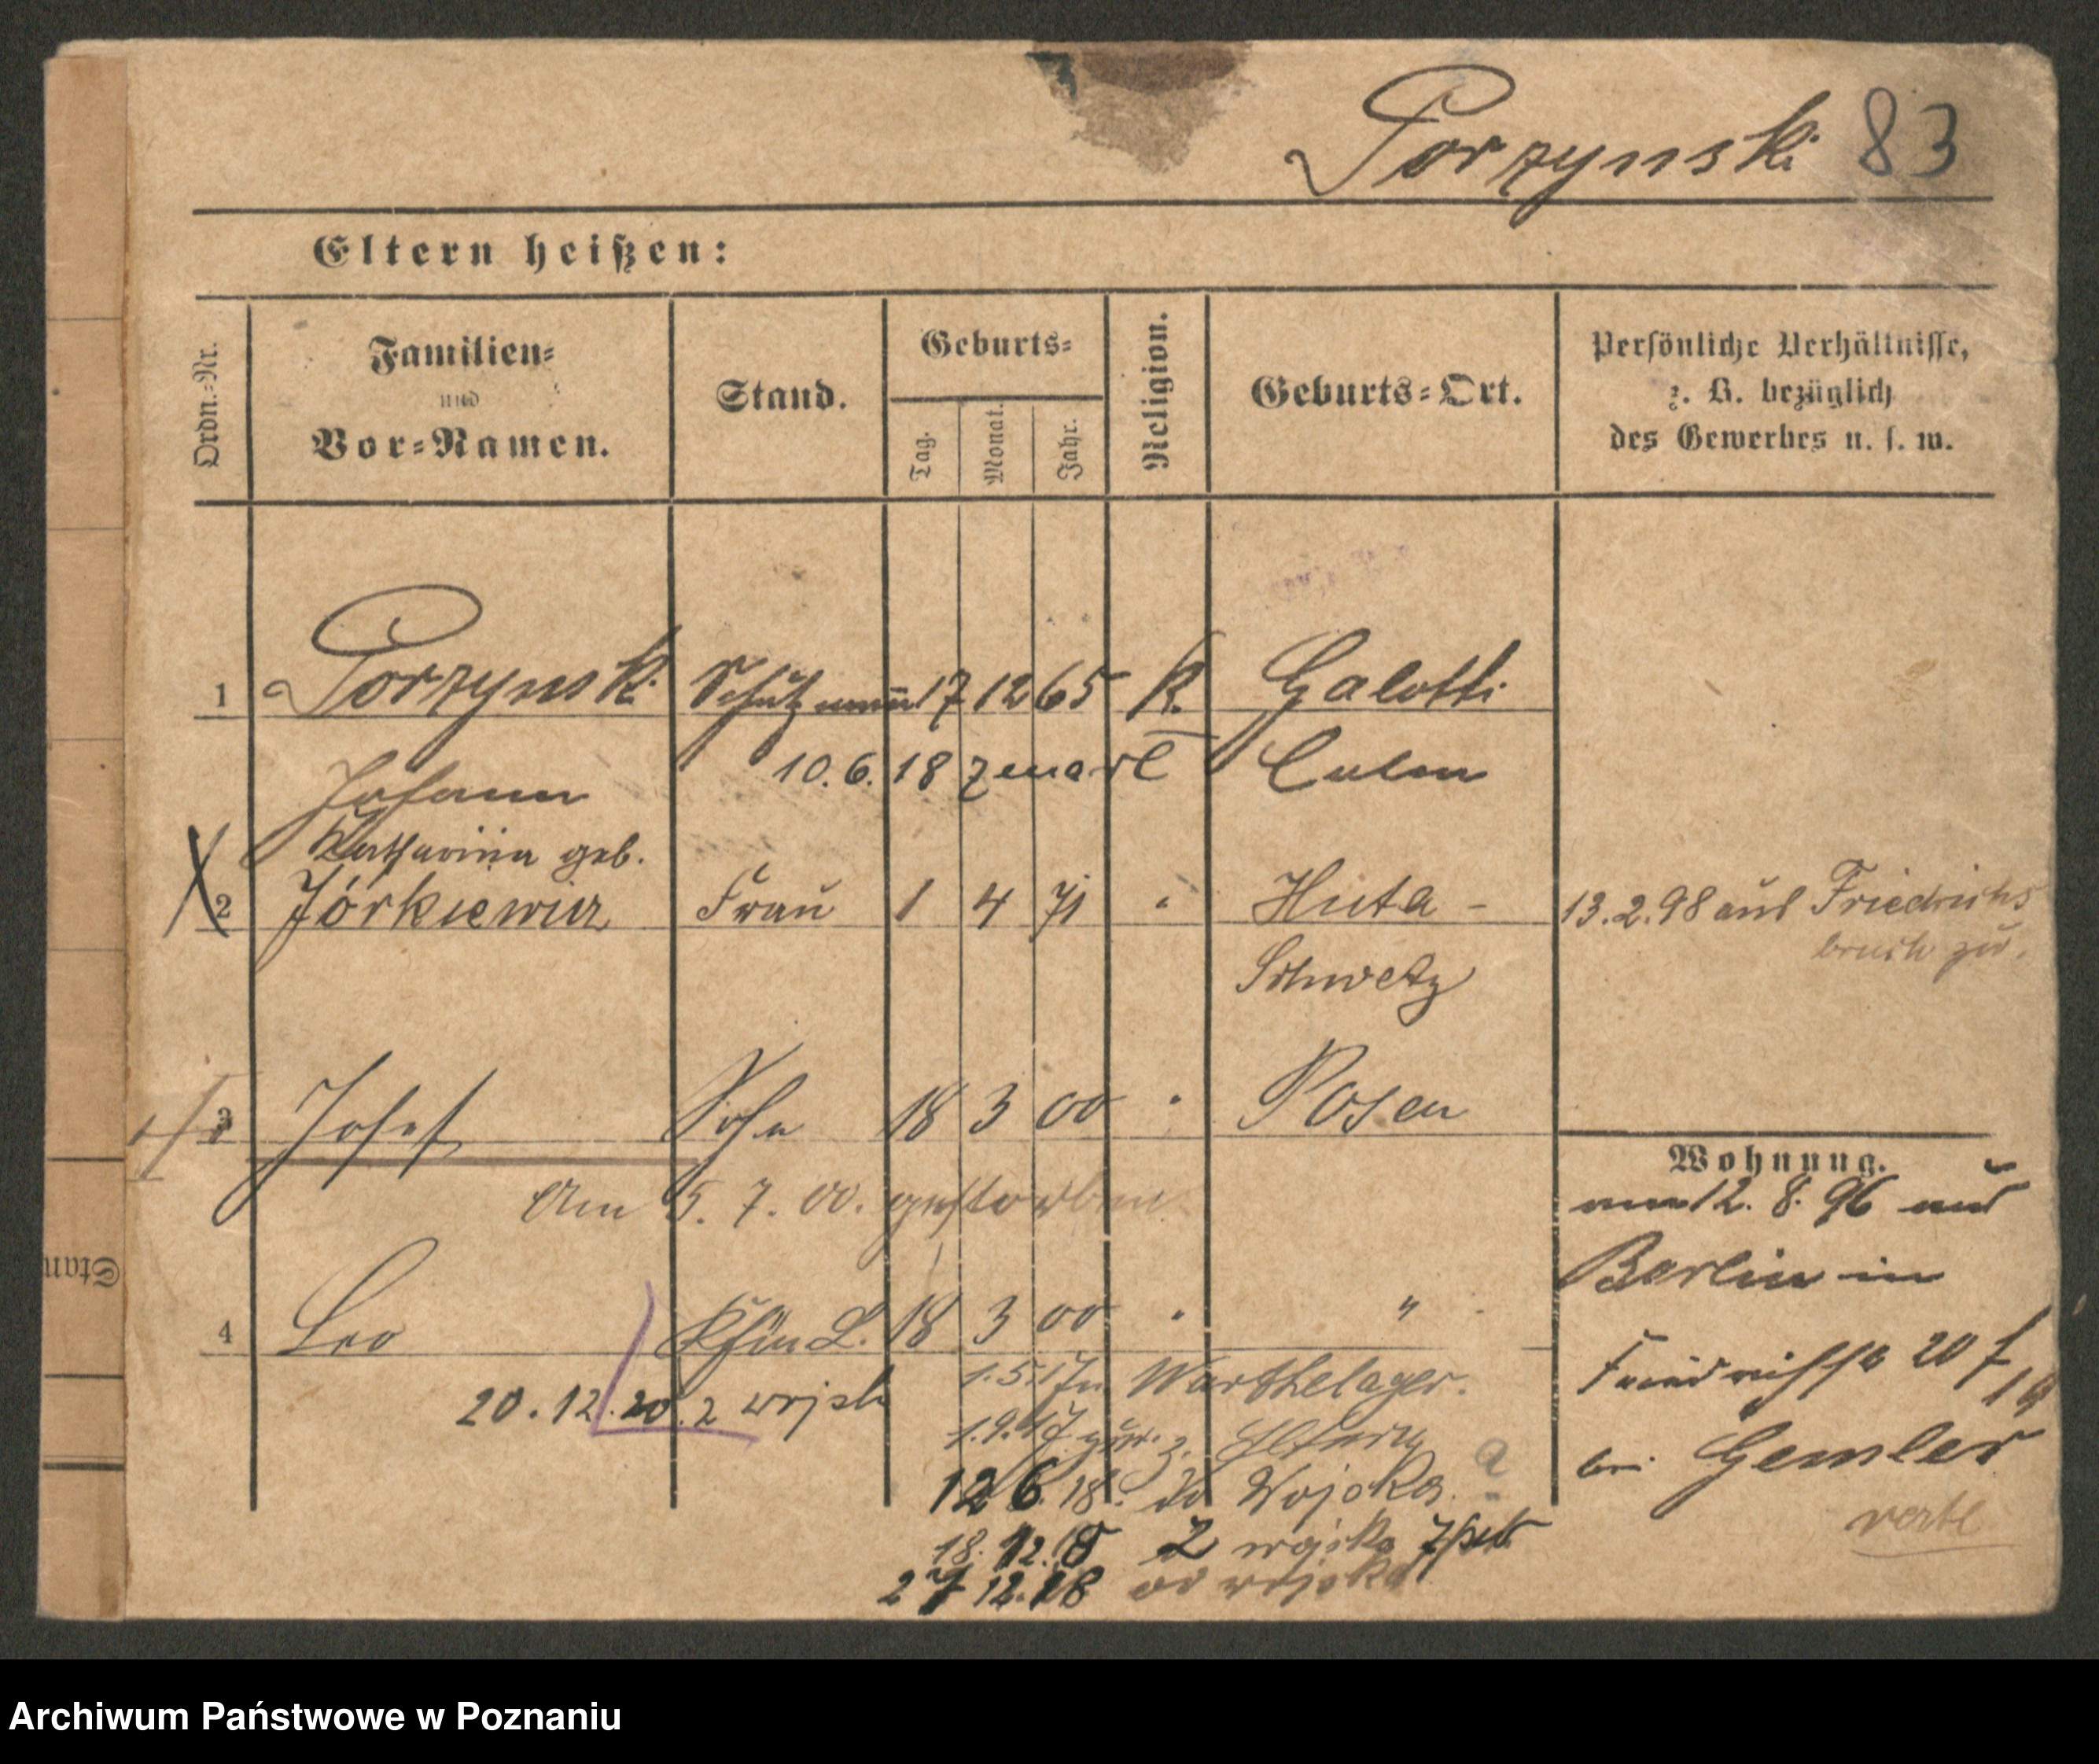 Porzynski 83
Eltern heißen:
Ordn.-Nr.
Familien-
und
Vor-Namen.
Stand.
Geburts-
Tag.
Monat.
Jahr.
Religion.
Geburts-Ort.
Persönliche Verhältnisse,
z. B. bezüglich
des Gewerbes u. s. w.
1 Porzynski Schutzmann 17 12 65 K. Galotti
Johann 10.6.18 zmarł Culm
Katharina geb.
2 Jórkiewicz Frau 1 4 71 " Huta - 13.2.98 aus Friedrichs
bruch zu.
Schwetz
3 Josef Sohn 18 3 00 " Posen
Am 5. 7. 00. gestorben
Wohnung.
am 12. 8. 96 aus
Berlin in
4 Leo 18 3 00 " "
20
1.5.17 Warthelager.
20.12.20. z wojsk
1.9.17
bei Gemler
12 6. 18. do Wojska.
verte
18. 12. 18 Z wojska
27 12. 18 do wojska
Stan
Archiwum Państwowe w Poznaniu